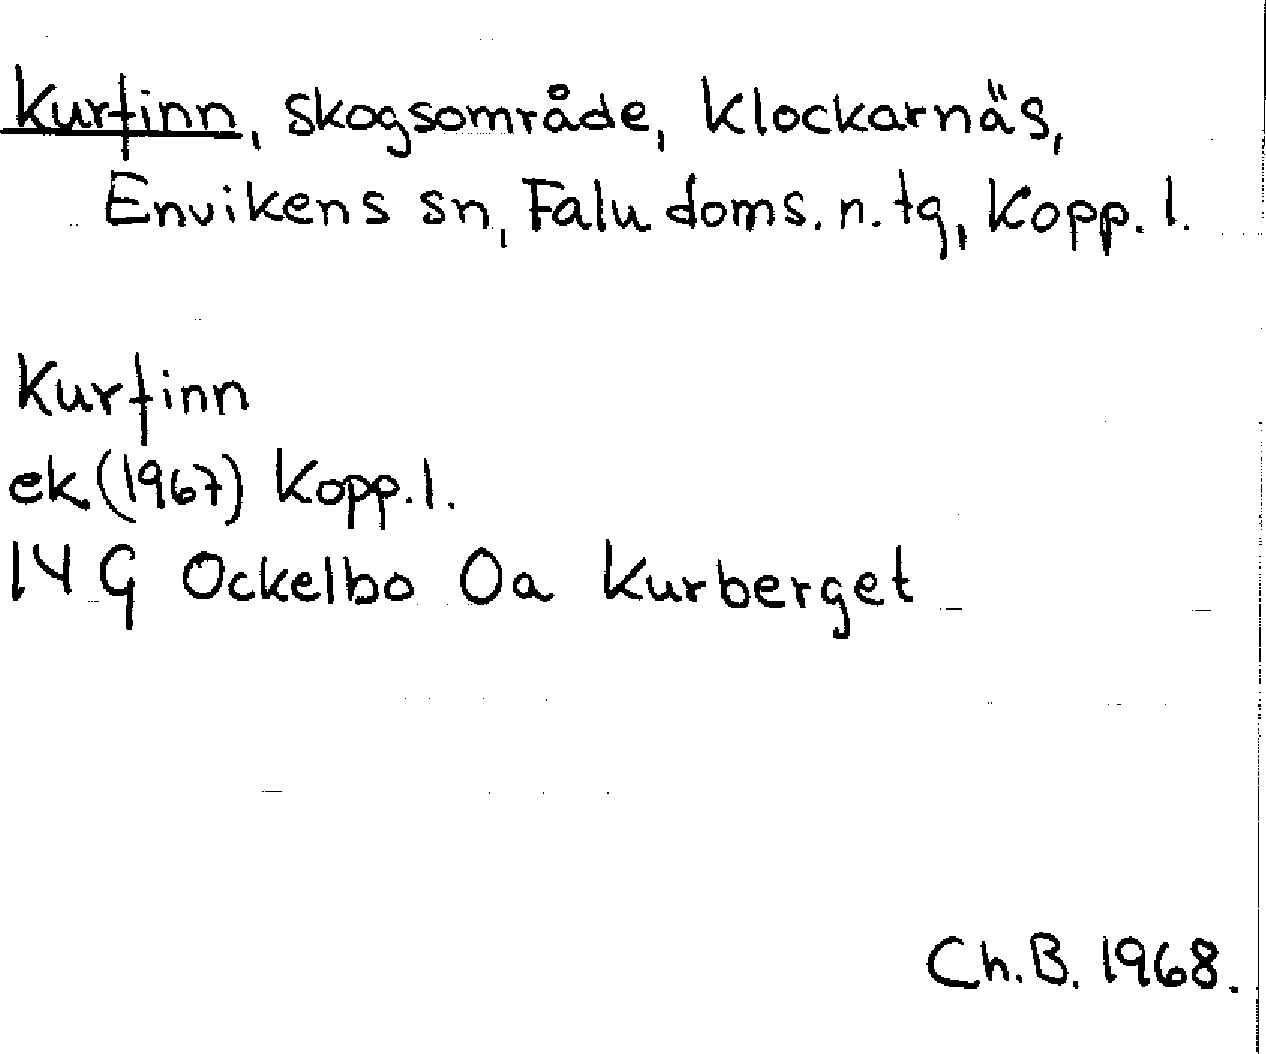 Kurfinn, skogsområde, Klockarnäs,
Envikens sn, Falu doms. n. tg, Kopp. l.
Kurfinn
ek (1967) Kopp. l.
14 G Ockelbo 0a Kurberget
Ch. B. 1968.